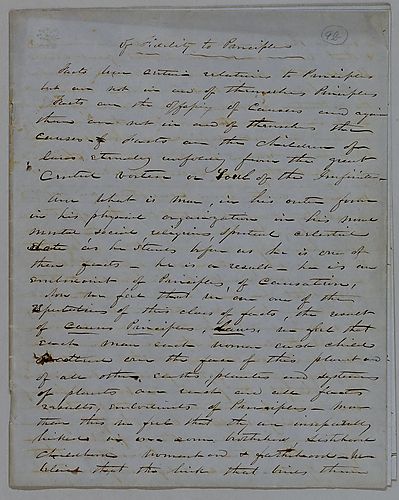 of Fidelity to Principles
Facts bear certain relations to Principles
but are not in and of themselves Principles
Facts are the offspring of Causes and again
these are not in and of themselves the
causes of Facts are the children of
laws eternally unfolding from the great
Central vortex or Soul of the Infinite
Now what is man, in his outer form
in his physical organization in his more
mental social religious spiritual celestial
state as he stands before us he is one of
these facts – he is a result – he is an
embodiment of Principles, of Causation,
Now we feel that we are one of the
of this class of facts, the result
of Causes Principles, Laws, we feel that
each man each woman each child
scattered over the face of this planet and
of all other earths, planets and systems
of planets are each and all facts
results, embodiments of Principles – more
than this we feel that they are inseparably
linked in one common brotherhood, Sisterhood
Womanhood & fatherhood – We
believe that the link that binds them